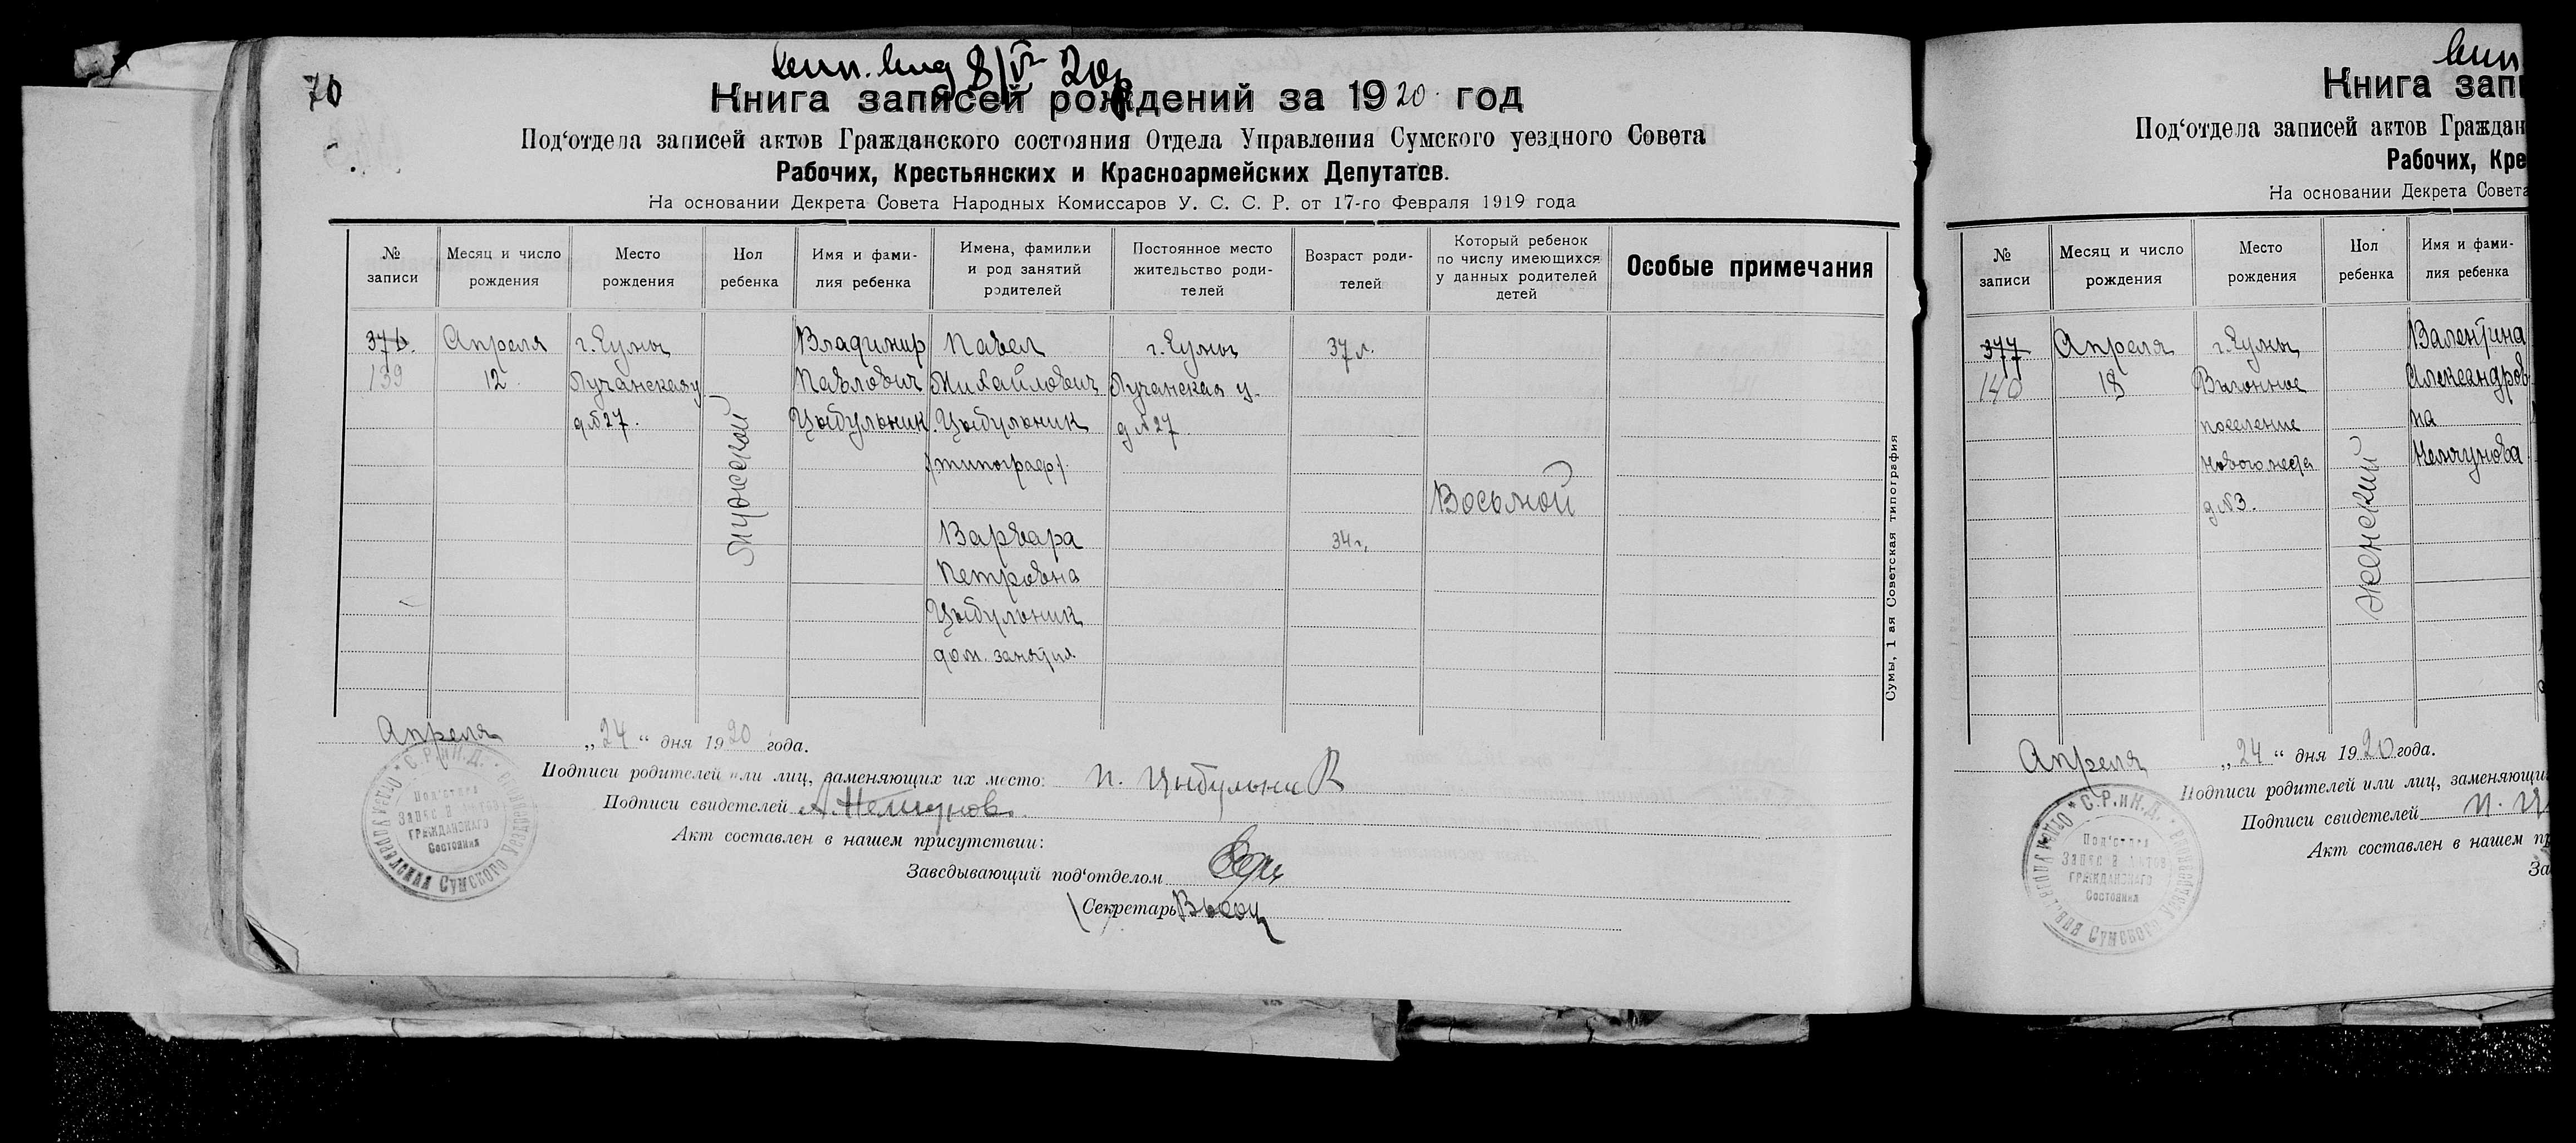 70
8/V 20
Книга записей рождений за 1920 год
Под‘отдела записей актов Гражданского состояния Отдела Управления Сумского уездного Совета
Рабочих, Крестьянских и Красноармейских Депутатов.
На основании Декрета Совета Народных Комиссаров У. С. С. Р. от 17-го Февраля 1919 года
№ записи
Месяц и число рождения
Место рождения
Пол ребенка
Имя и фами-
лия ребенка
Имена, фамилии
и род занятий
родителей
Постоянное место
жительство роди-
телей
Возраст роди-
телей
Который ребенок
по числу имеющихся
у данных родителей
детей
Особые примечания
376.
139
Апреля
12
г. Сумы
Лучанская у
д №27.
Мужской
Владимир
Павлович
Цыбульник
Павел
Михайлович
Цыбульник
/типограф/.
Варвара
Петровна
Цыбульник
дом. занятия
г. Сумы
Лучанская у.
д №27
37 л.
34 г.
Восьмой
Сумы, 1 ая Советская типография
Апреля „24“ дня 1920 года.
Подписи родителей или лиц, заменяющих их место: П. Цыбульник
Подписи свидетелей А. Немчунов.
Акт составлен в нашем присутствии:
Заведывающий под‘отделом
Секретарь
С.Р.иК.Д. Отдел Управления Сумского Уездного
Под‘отдел
Записи Актов
Гражданскаго
Состояния
Книга зап
Под‘отдела записей актов Граждан
Рабочих, Кре
На основании Декрета Совета
№ записи
Месяц и число рождения
Место рождения
Пол ребенка
Имя и фами-
лия ребенка
377
140
Апреля
18
г. Сумы
Выгонное
поселение
нового места
д №3.
Женский
Валентина
Александров
на
Немчунова
Апреля „24“ дня 1920 года.
Подписи родителей или лиц, заменяющи
Подписи свидетелей П. Ц
Акт составлен в нашем пр
За
С.Р.иК.Д. Отдел Управления Сумского Уездного
Под‘отдел
Записи Актов
Гражданскаго
Состояния